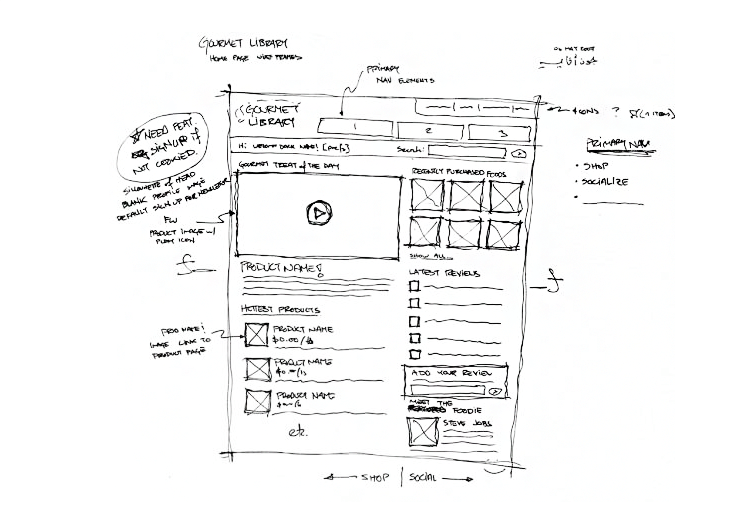 GOURMET LIBRARY
HOME PAGE WIREFRAMES
PRIMARY
NAV ELEMENTS
GOURMET
LIBRARY
1
2
3
ICONS ?
(1 ITEM)
PRIMARY NAV
• SHOP
• SOCIALIZE
•
NEED FEAT.
SIGNUP IF
NOT COOKIED.
SILHOUETTE of HEAD
BLANK PROFILE IMAGE
DEFAULT SIGN UP FOR NEWSLETTER
Hi, WELCOME BACK NAME!
Search:
GOURMET TREAT of THE DAY
RECENTLY PURCHASED FOODS
PRODUCT IMAGE w/
PLAY ICON
SHOW ALL
PRODUCT NAME!
LATEST REVIEWS
HOTTEST PRODUCTS
PROD NAME!
IMAGE LINK TO
PRODUCT PAGE
PRODUCT NAME
$0.00/lb
PRODUCT NAME
PRODUCT NAME
etc.
ADD YOUR REVIEW
MEET THE
FOODIE
STEVE JOBS
SHOP | SOCIAL